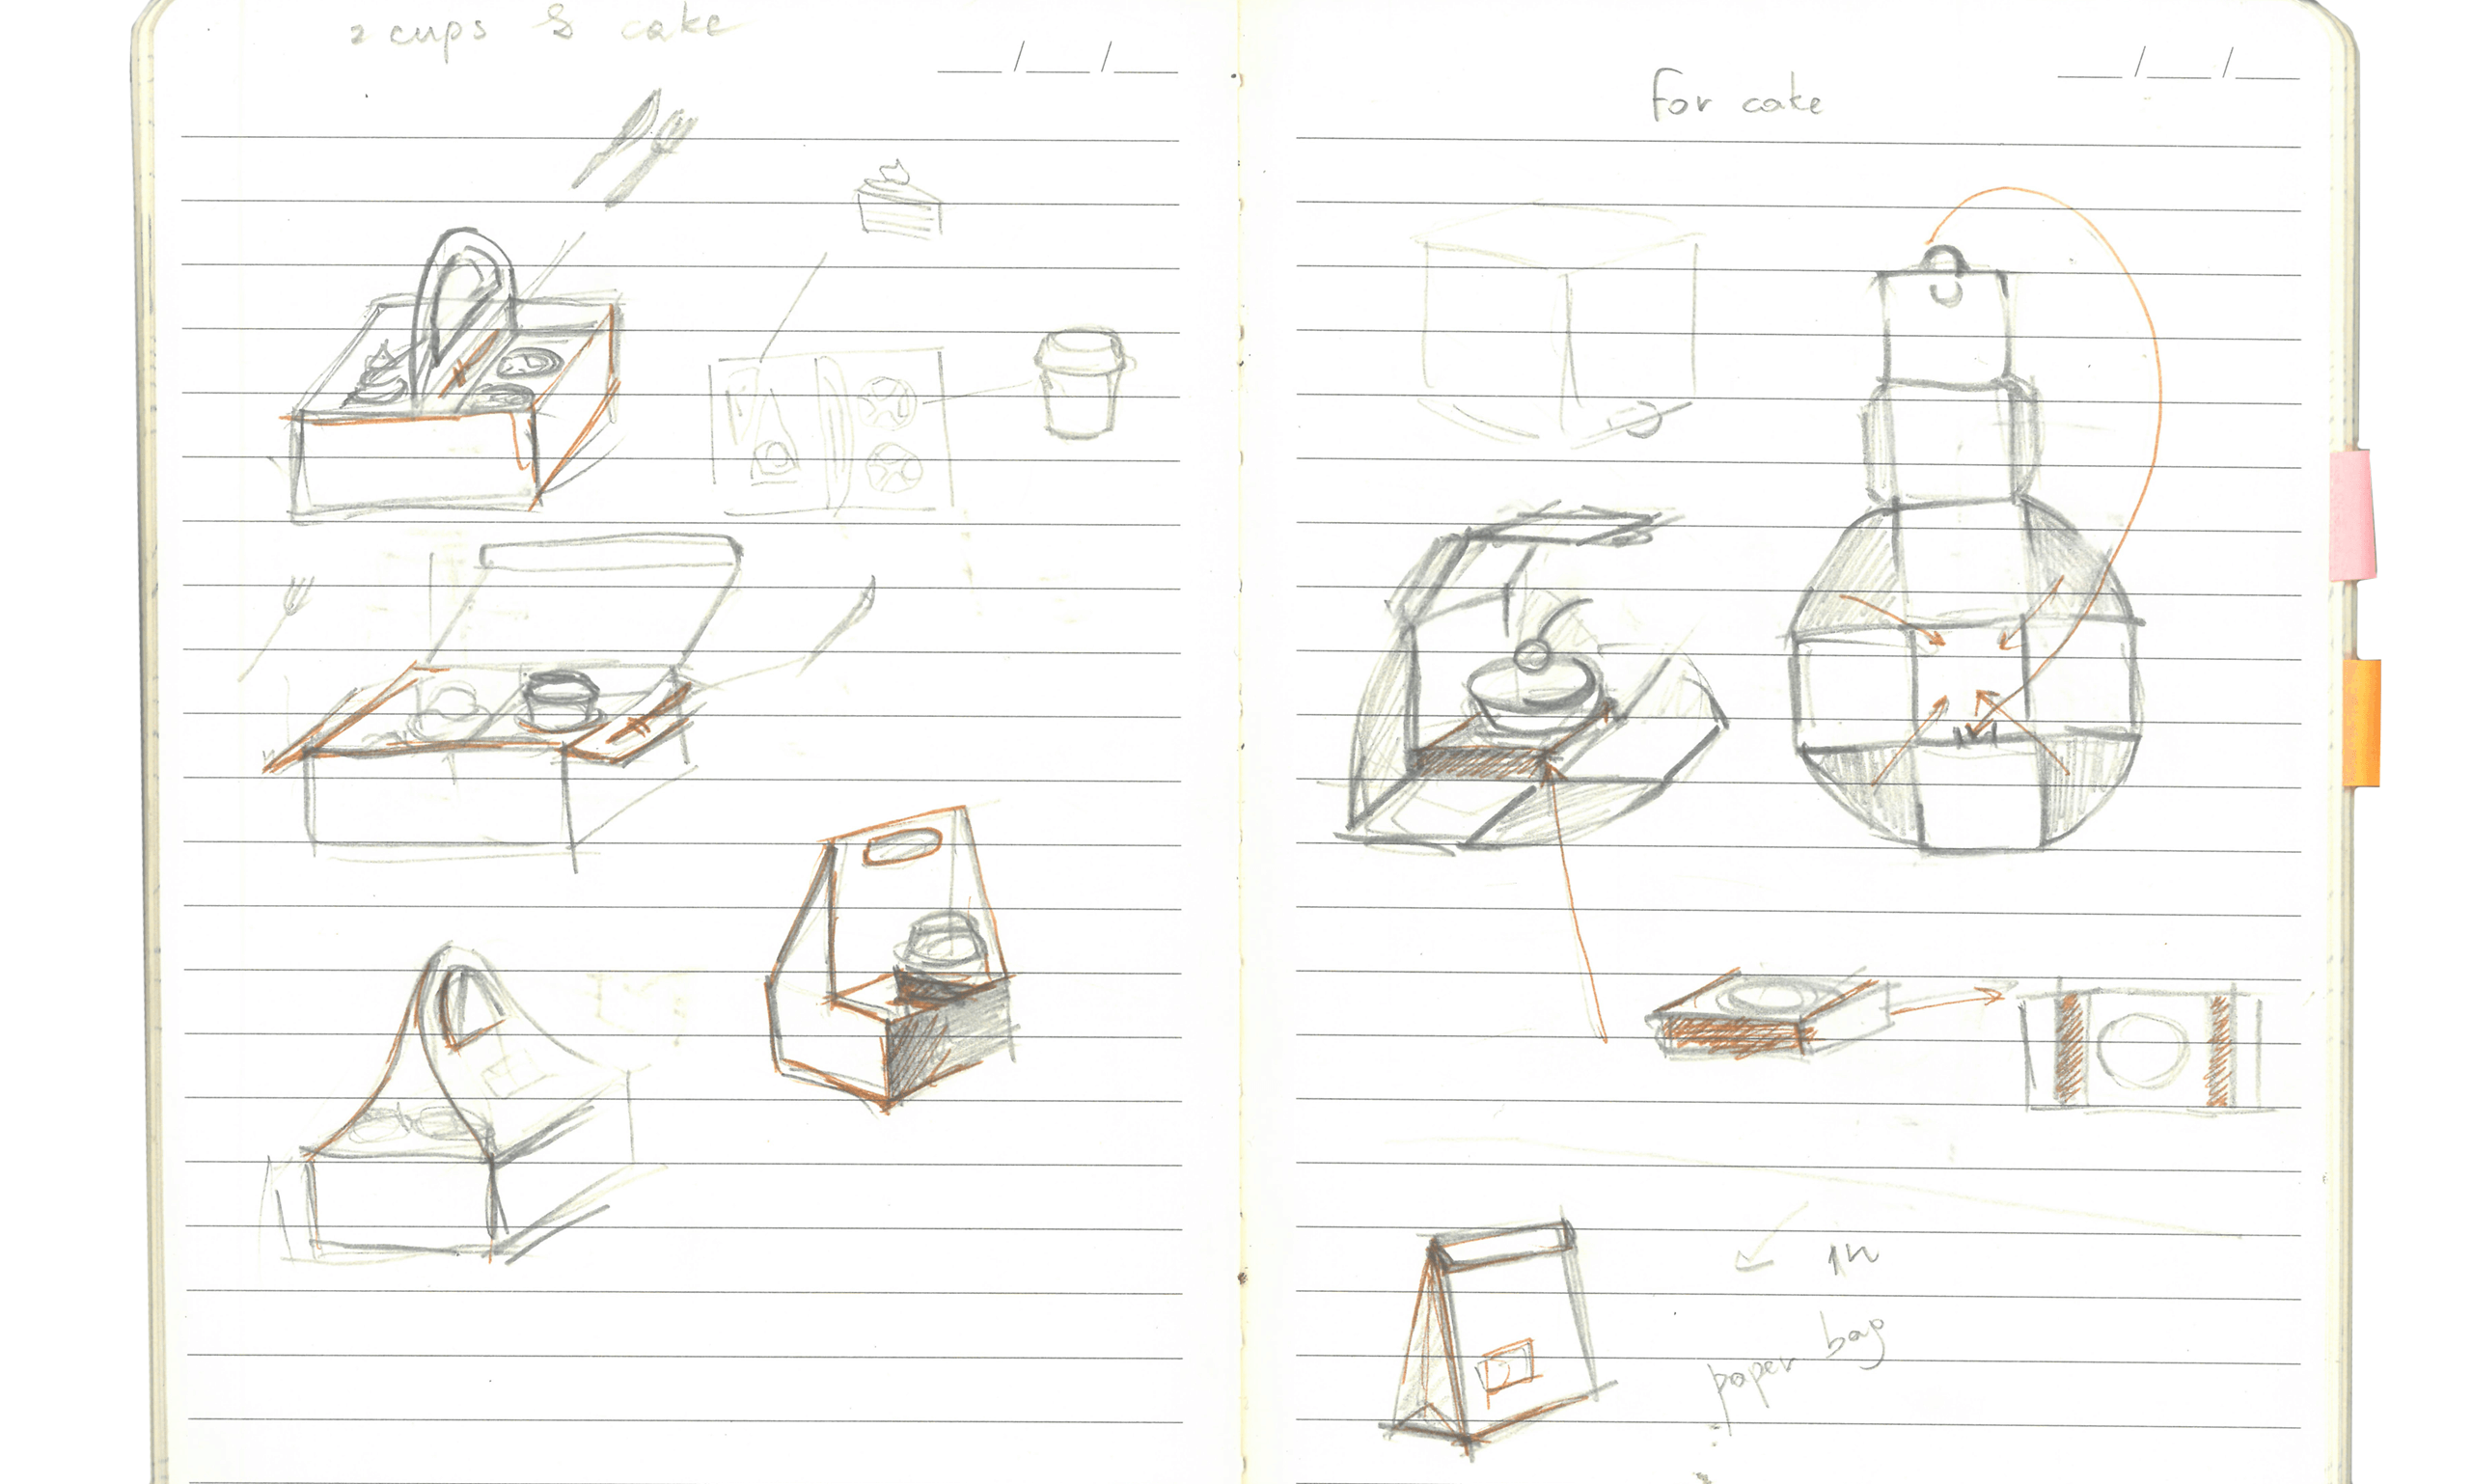 2 cups & cake
__/__/__
__/__/__
for cake
in
paper bag